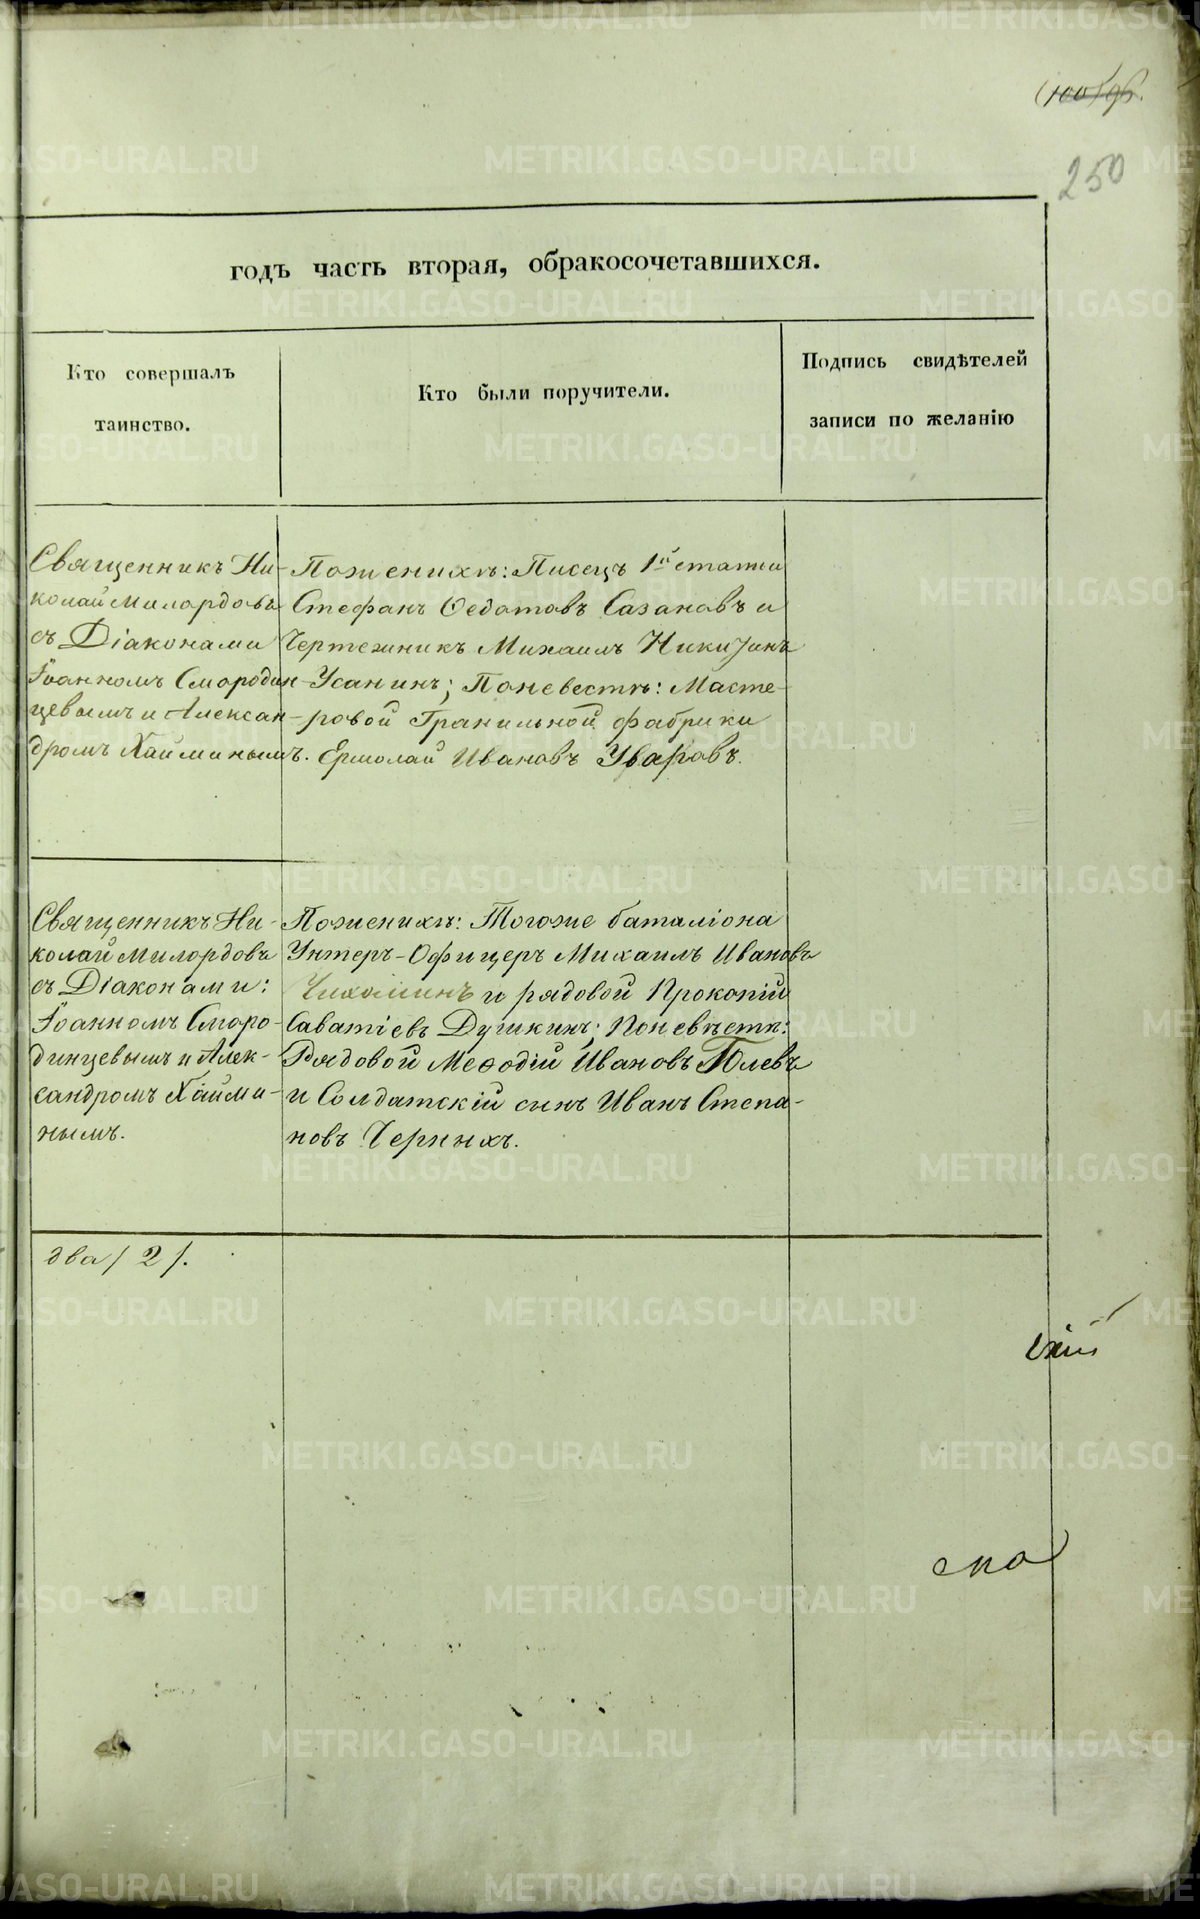 250
годъ часть вторая, обракосочетавшихся.
Кто совершалъ
таинство.
Кто были поручители.
Подпись свидѣтелей
записи по желанію
Священникъ Ни-
колай Милордовъ
съ Діаконами
Іоанномъ Смородин-
цевымъ и Алексан-
дромъ Хайминымъ.
Поженихѣ: Писецъ 1й статьи
Стефанъ Ѳедотовъ Сазановъ и
Чертежникъ Михаилъ Никитинъ
Усанинъ; Поневестѣ: Масте-
ровой Гранильной фабрики
Ермолай Ивановъ Уваровъ.
Священникъ Ни-
колай Милордовъ
съ Діаконами:
Іоанномъ Сморо-
динцевымъ и Алек-
сандромъ Хайми-
нымъ.
Поженихѣ: Тогоже баталіона
Унтеръ-Офицеръ Михаилъ Ивановъ
и рядовой Прокопій
Саватіевъ Душкинъ; Поневѣстѣ:
Рядовой Меѳодій Ивановъ
и Солдатскій сынъ Иванъ Степа-
новъ Черныхъ.
два / 2 /.
ска
METRIKI.GASO-URAL.RU